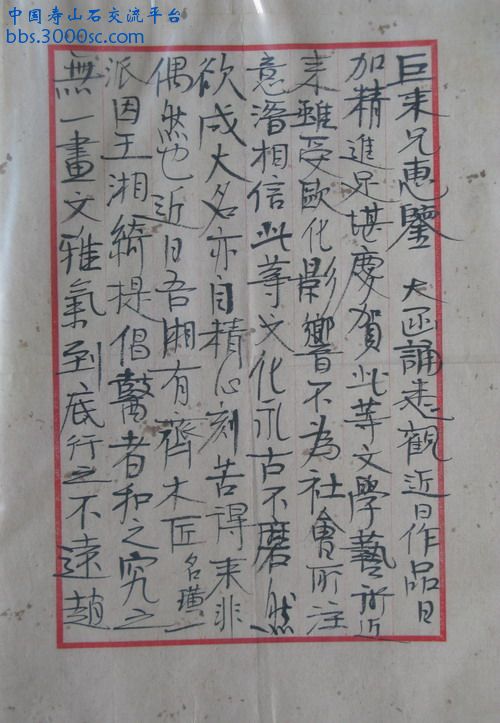 中国寿山石交流平台
bbs.3000sc.com
巨来兄惠鑒 大函誦悉觀近日作品日
加精進足堪慶賀此等文學藝術近
来雖受歐化影響不為社會所注
意潛相信此等文化永古不磨然
欲成大名亦自精心刻苦得来非
偶然也近日吾湘有齊木匠名璜一
派因王湘綺提倡瞽者和之究之
無一畫文雅氣到底行之不遠趙